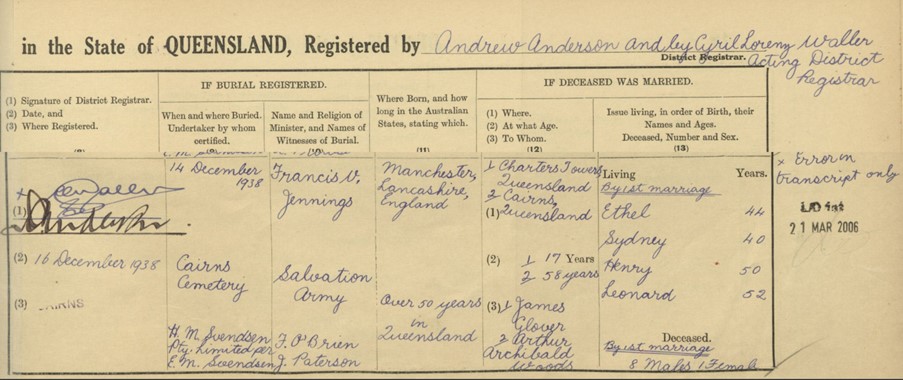 in the State of QUEENSLAND, Registered by Andrew Anderson and by Cyril Loreny Waller
District Registrar. Acting District
Registrar
(1) Signature of District Registrar.
(2) Date, and
(3) Where Registered.
IF BURIAL REGISTERED.
When and where Buried.
Undertaker by whom
certified.
Name and Religion of
Minister, and Names of
Witnesses of Burial.
Where Born, and how
long in the Australian
States, stating which.
(11)
IF DECEASED WAS MARRIED.
(1) Where.
(2) At what Age.
(3) To Whom.
(12)
Issue living, in order of Birth, their
Names and Ages.
Deceased, Number and Sex.
(13)
x
(1)
(2) 16 December 1938
(3) CAIRNS
14 December
1938
Cairns
Cemetery
H. M. Svendsen
Pty. Limited per
E. M. Svendsen
Francis V.
Jennings
Salvation
Army
F. O'Brien
J. Paterson
Manchester,
Lancashire,
England
Over 50 years
in
Queensland
1 Charters Towers
Queensland
2 Cairns,
(1) Queensland
(2) 1 17 Years
2 58 years
(3) 1 James
Glover
2 Arthur
Archibald
Woods
Living Years.
By 1st marriage
Ethel 44
Sydney 40
Henry 50
Leonard 52
Deceased.
By 1st marriage
8 Males 1 Female
x Error in
transcript only
21 MAR 2006